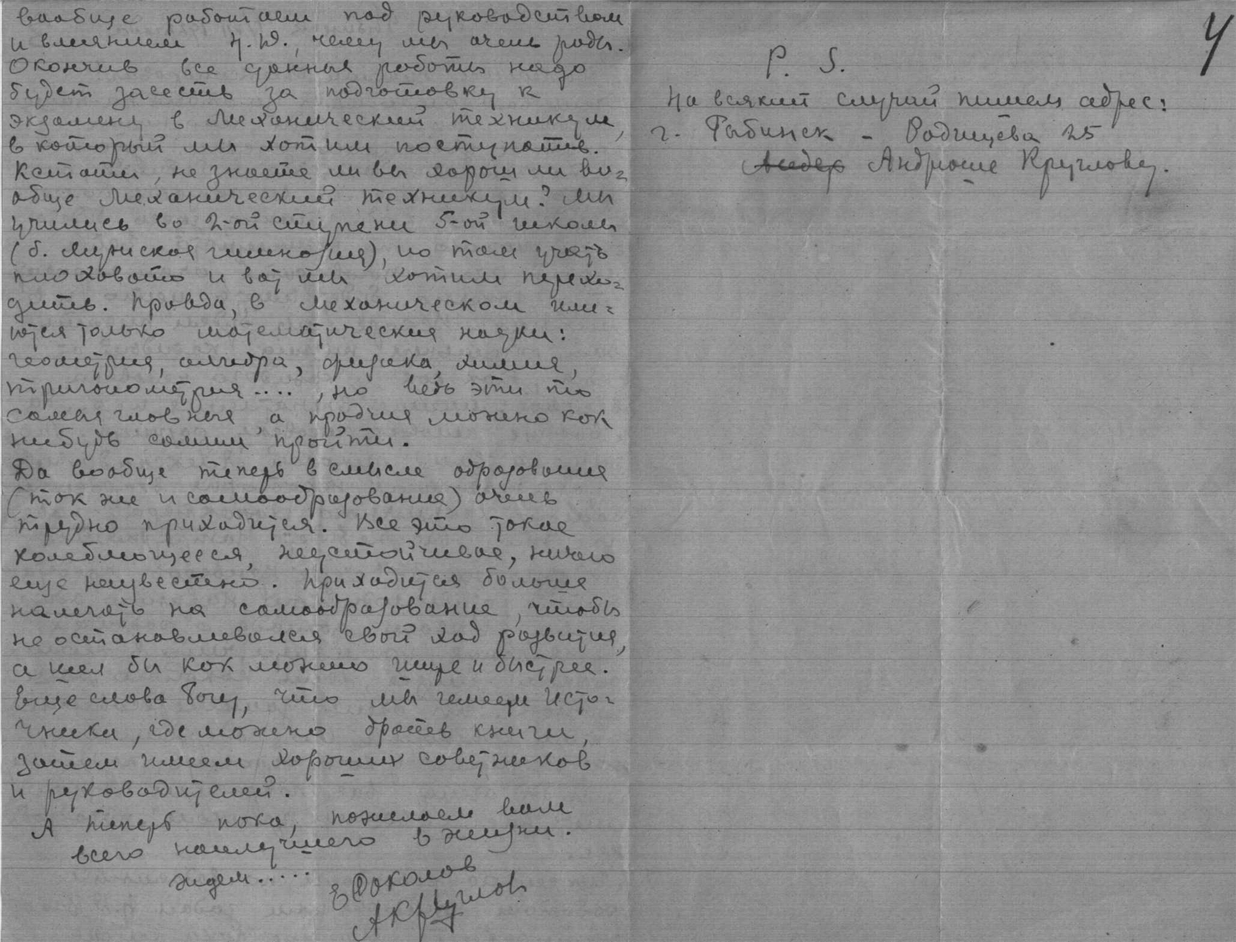 вообще работаем под руководством
и влиянием чему мы очень рады.
Окончив все данныя работы надо
будет засесть за подготовку к
экзамену в Механический техникум,
в который мы хотим поступать.
Кстати, не знаете ли вы хорош ли во-
обще Механический техникум? Мы
учились во 2-ой ступени 5-ой школы
(б. Мужская гимназия), но там учат
плоховато и вот мы хотим перехо-
дить. Правда, в Механическом име-
ются только математическия науки:
геометрия, алгебра, физика, химия,
тригонометрия...., но ведь эти то
самыя главныя, а прочия можно как
нибудь самим пройти.
Да вообще теперь в смысле образования
(так же и самообразования) очень
трудно приходится. Все это такое
колеблющееся, неустойчивае, ничего
еще неизвестно. Приходится больше
налегать на самообразование, чтобы
не останавливался свой ход развития,
а шел бы как можно шире и быстрее.
Еще слава Богу, что мы имеем исто-
чники, где можно брать книги,
затем имеем хороших советников
и руководителей.
А теперь пока, пожелаем вам
всего наилучшего в жизни.
Ждем.....
Е Соколов
А Круглов
4
P. S.
На всякий случай пишем адрес:
г. Рыбинск - Радищева 25
Андрюше Круглову.